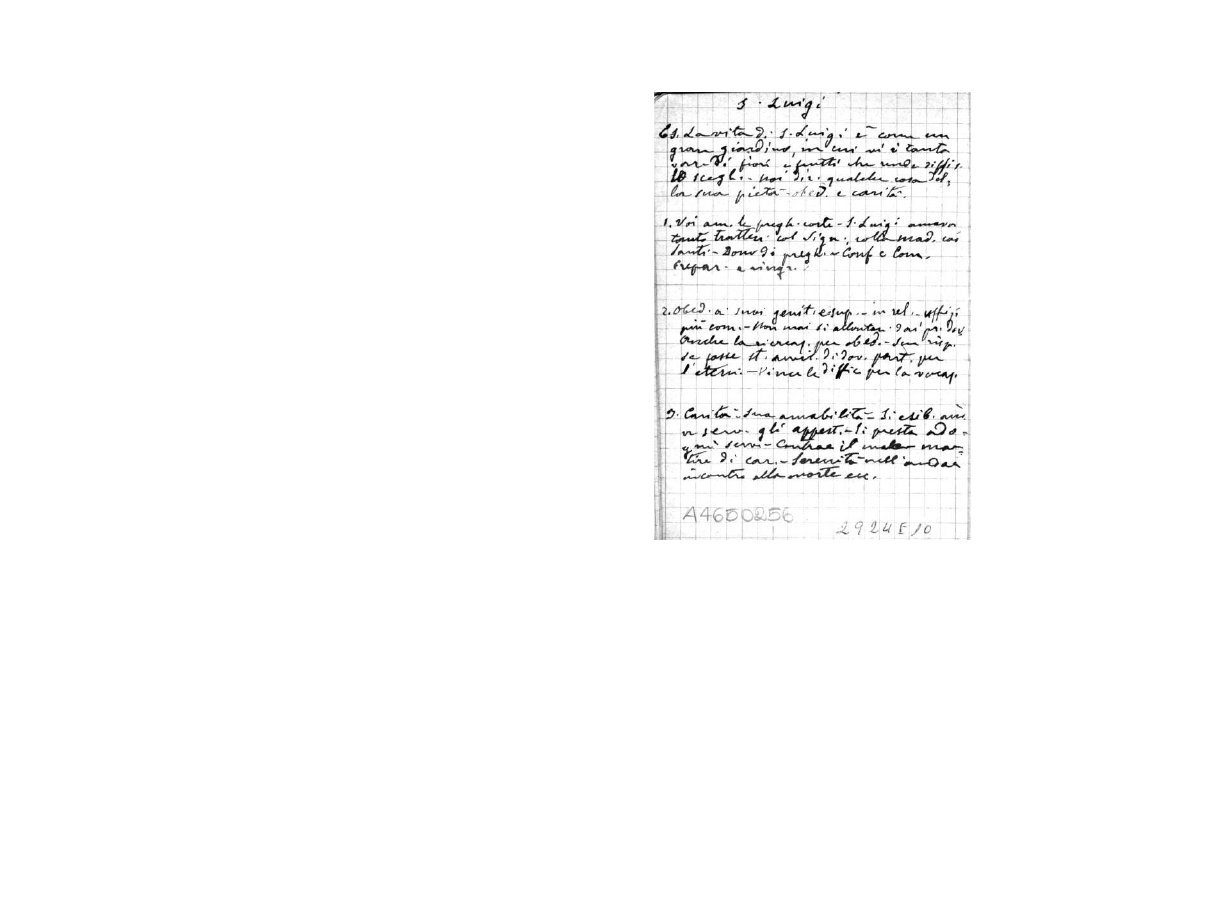 S. Luigi
Es. La vita di S. Luigi è come un
gran giardino, in cui vi è tanta
var. di fiori e frutti che rende diffic.
lo scegl. - Noi dir. qualche cosa del-
la sua pietà - obed. e carità.
1. Voi am. le pregh. corte - S. Luigi amava
tanto tratten. col Sign., colla Mad. coi
Santi - Dono di pregh. - Conf. e Com.
Prepar. e ringr.
2. Obed. a' suoi genit. e sup. - in rel. - uffizi
più com. - Non mai si allontan. dai
anche la ricreaz. per obed. - Sua risp.
se fosse st. avvis. di dov. part. per
l'etern. - Vince le diffic. per la vocaz.
3. Carità - Sua amabilità - Si esib.
a serv. gli appest. - Si presta ad o-
gni servi - Contrae il male mar-
tire di car. - Serenità nell'andar
incontro alla morte ecc.
A4650256
2924E10